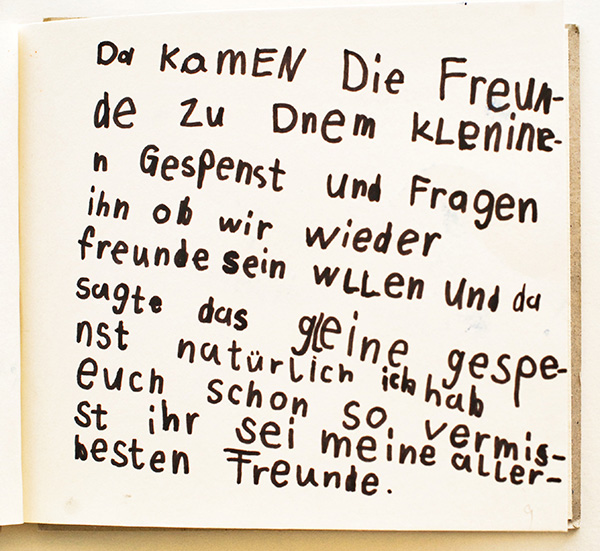 Da KamEN Die Freun-
de zu Dnem kLenine-
n Gespenst und Fragen
ihn ob wir wieder
freunde sein wLLen und da
sagte das gleine gespe-
nst natürlich ich hab
euch schon so vermis-
st ihr sei meine aller-
besten Freunde.
9